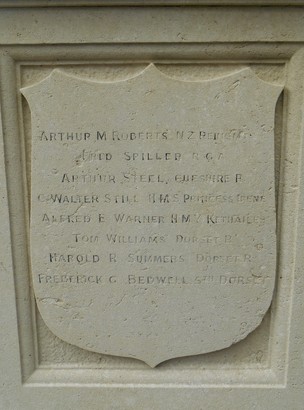 ARTHUR M ROBERTS, N Z
FRED SPILLER R G A
ARTHUR STEEL, CHESHIRE R
WALTER STILL H.M.S PRINCESS IRENE
ALFRED E WARNER H.M.Y KETHAILES
TOM WILLIAMS DORSET R
HAROLD R SUMMERS DORSET R
FREDERICK G BEDWELL 5TH DORSET